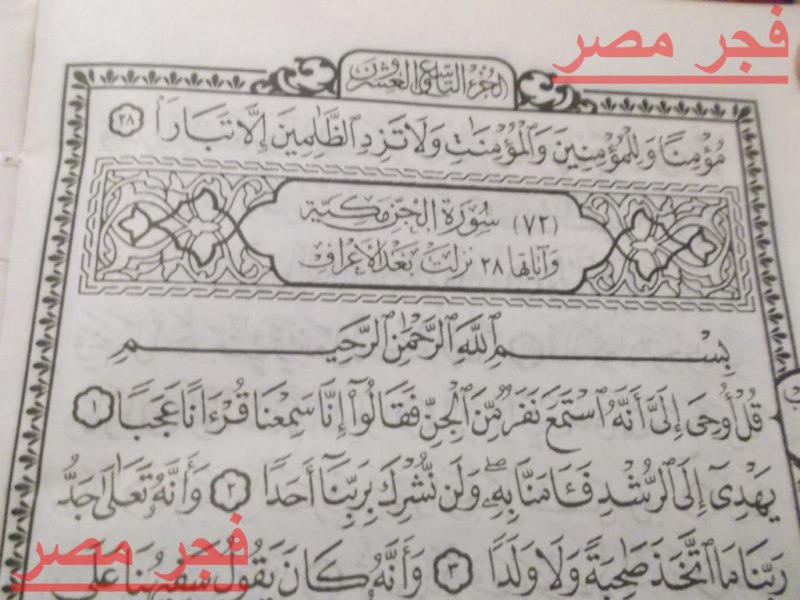 فجر مصر
الجزء التاسع والعشرون
مُؤْمِنًا وَلِلْمُؤْمِنِينَ وَٱلْمُؤْمِنَٰتِ وَلَا تَزِدِ ٱلظَّٰلِمِينَ إِلَّا تَبَارًۢا ٢٨
(٧٢) سُورَةُ الْجِنِّ مَكِّيَّة
وَآيَاتُهَا ٢٨ نَزَلَتْ بَعْدَ الأَعْرَاف
بِسْمِ ٱللَّهِ ٱلرَّحْمَٰنِ ٱلرَّحِيمِ
قُلْ أُوحِىَ إِلَىَّ أَنَّهُ ٱسْتَمَعَ نَفَرٌ مِّنَ ٱلْجِنِّ فَقَالُوٓا۟ إِنَّا سَمِعْنَا قُرْءَانًا عَجَبًا ١
يَهْدِىٓ إِلَى ٱلرُّشْدِ فَـَٔامَنَّا بِهِۦ ۖ وَلَن نُّشْرِكَ بِرَبِّنَآ أَحَدًا ٢ وَأَنَّهُۥ تَعَٰلَىٰ جَدُّ
رَبِّنَا مَا ٱتَّخَذَ صَٰحِبَةً وَلَا وَلَدًا ٣ وَأَنَّهُۥ كَانَ يَقُولُ سَفِيهُنَا عَلَى
فجر مصر